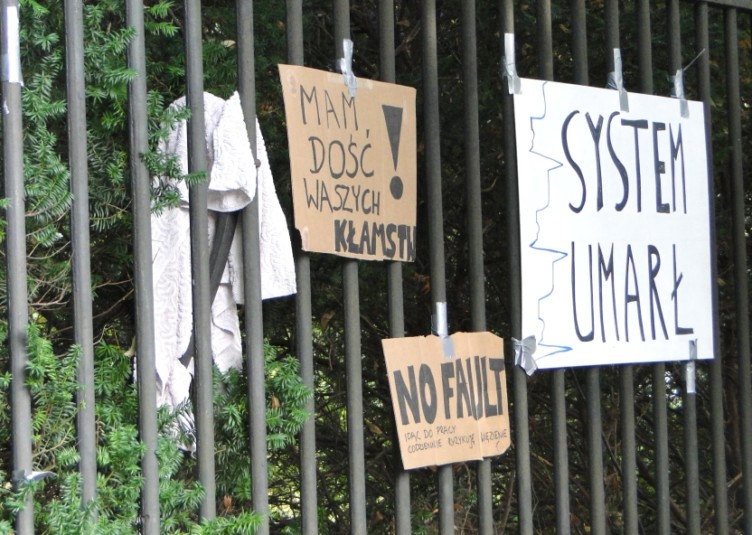 MAM
DOŚĆ
WASZYCH
KŁAMSTW
!
NO FAULT
IDĄC DO PRACY
CODZIENNIE RYZYKUJĘ WIĘZIENIE
SYSTEM
UMARŁ